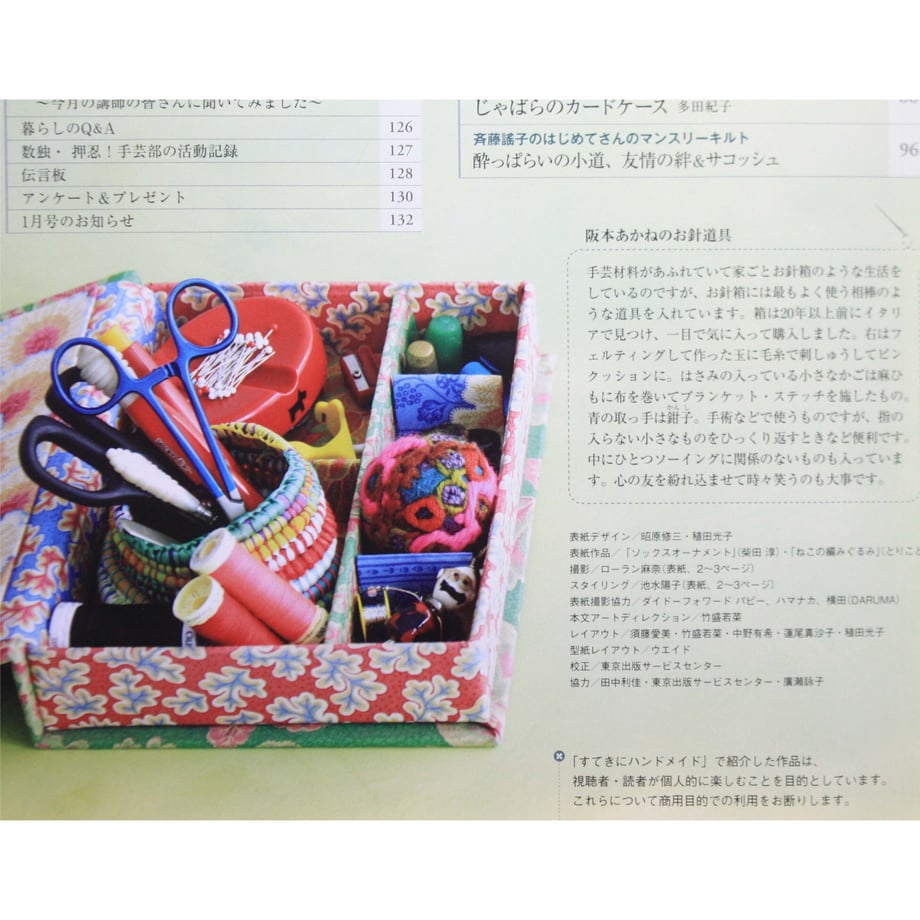 ～今月の講師の皆さんに聞いてみました～
暮らしのQ&A 126
数独・押忍！手芸部の活動記録 127
伝言板 128
アンケート&プレゼント 130
1月号のお知らせ 132
じゃばらのカードケース 多田紀子
斉藤謠子のはじめてさんのマンスリーキルト
酔っぱらいの小道、友情の絆&サコッシュ 96
阪本あかねのお針道具
手芸材料があふれていて家ごとお針箱のような生活を
しているのですが、お針箱には最もよく使う相棒のよ
うな道具を入れています。箱は20年以上前にイタリ
アで見つけ、一目で気に入って購入しました。右はフ
ェルティングして作った玉に毛糸で刺しゅうしてピン
クッションに。はさみの入っている小さなかごは麻ひ
もに布を巻いてブランケット・ステッチを施したもの。
青の取っ手は鉗子。手術などで使うものですが、指の
かんし
入らない小さなものをひっくり返すときなど便利です。
中にひとつソーイングに関係のないものも入っていま
す。心の友を紛れ込ませて時々笑うのも大事です。
表紙デザイン／昭原修三・植田光子
表紙作品／「ソックスオーナメント」（柴田 淳）・「ねこの編みぐるみ」（とりこと
撮影／ローラン麻奈（表紙、2～3ページ）
スタイリング／池水陽子（表紙、2～3ページ）
表紙撮影協力／ダイドーフォワード パピー、ハマナカ、横田（DARUMA）
本文アートディレクション／竹盛若菜
レイアウト／須藤愛美・竹盛若菜・中野有希・蓮尾真沙子・植田光子
型紙レイアウト／ウエイド
校正／東京出版サービスセンター
協力／田中利佳・東京出版サービスセンター・廣瀬詠子
「すてきにハンドメイド」で紹介した作品は、
視聴者・読者が個人的に楽しむことを目的としています。
これらについて商用目的での利用をお断りします。